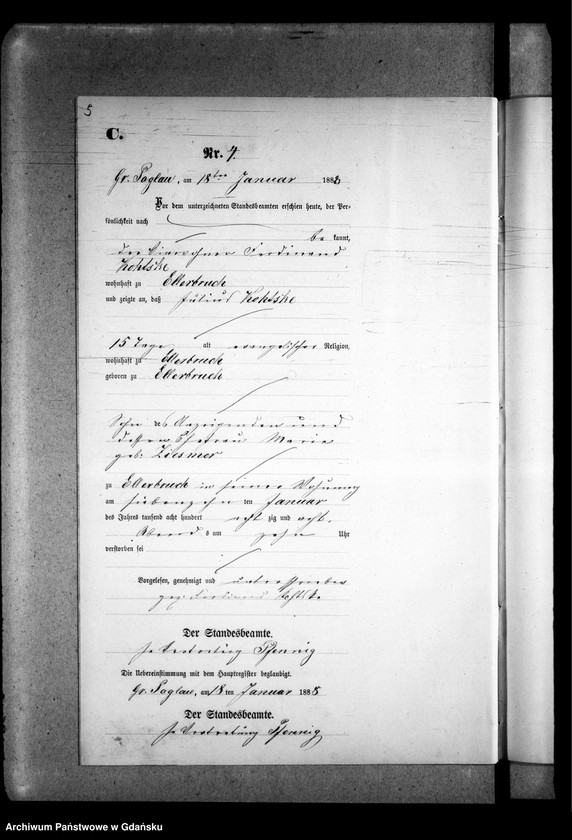 5
C.
Nr. 4.
Gr. Paglau, am 18ten Januar 1888
Vor dem unterzeichneten Standesbeamten erschien heute, der Per-
sönlichkeit nach
be kannt,
der Einwohner Ferdinand
Kohtske
wohnhaft zu Ellerbruch
und zeigte an, daß Julius Kohtske
15 Tage alt evangelischer Religion,
wohnhaft zu Ellerbruch
geboren zu Ellerbruch
Sohn des Anzeigenden und
dessen Ehefrau Marie
geb. Ziesmer
zu Ellerbruch in seiner Wohnung
am siebenzehn ten Januar
des Jahres tausend acht hundert acht zig und acht,
Abends um zehn Uhr
verstorben sei
Vorgelesen, genehmigt und unterschrieben
gez. Ferdinand Kohtske
Der Standesbeamte.
In Vertretung Pfennig
Die Uebereinstimmung mit dem Hauptregister beglaubigt.
Gr. Paglau, am 18 ten Januar 1888
Der Standesbeamte.
In Vertretung Pfennig
Archiwum Państwowe w Gdańsku